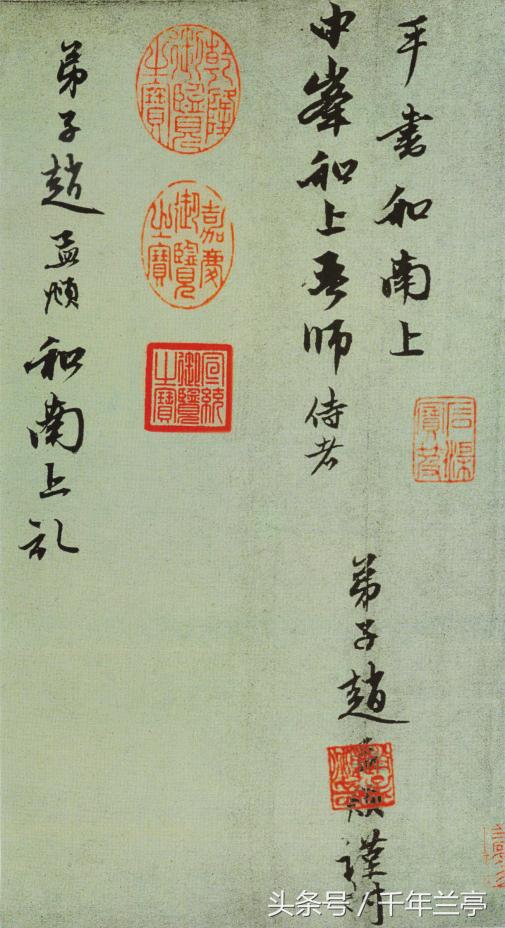 手書和南上
中峯和上吾師侍者
弟子趙孟頫謹封
趙氏子昂
乾隆御覽之寶
嘉慶御覽之寶
宣統御覽之寶
弟子趙孟頫和南上礼
头条号/千年兰亭